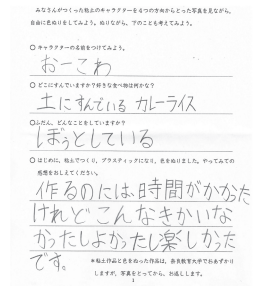 みなさんがつくった粘土のキャラクターを４つの方向からとった写真を見ながら、
自由に色ぬりをしてみよう。ぬりながら、下のことも考えてみよう。
○ キャラクターの名前をつけてみよう。
おーこわ
○ どこにすんでいますか？好きな食べ物は何かな？
土にすんでいる カレーライス
○ふだん、どんなことをしていますか？
ぼぅとしている
○ はじめに、粘土でつくり、プラスティックになり、色をぬりました。やってみての
感想をおしえてください。
作るのには、時間がかかった
けれどこんなきかいな
かったしよかったし楽しかった
です。
＊粘土作品と色をぬった作品は、奈良教育大学でおあずかり
しますが、写真をとってから、お返しします。
1